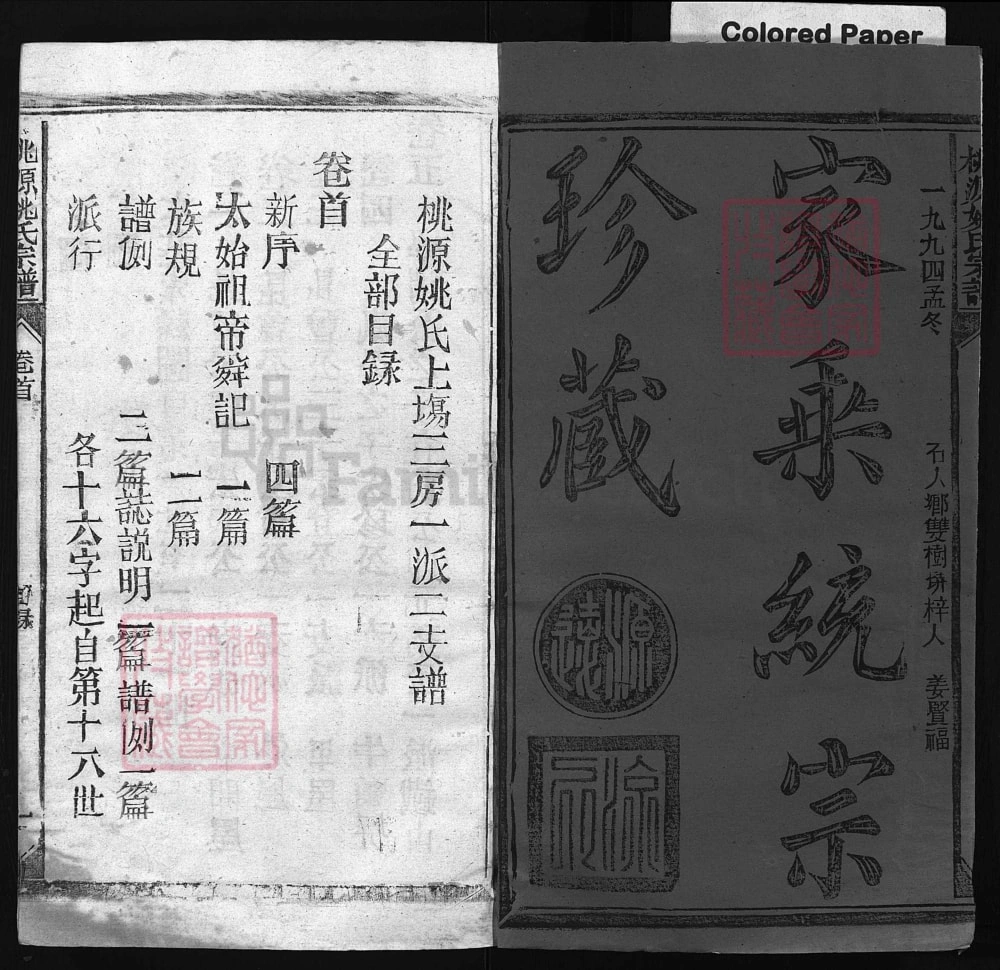 Colored Paper
桃源姚氏宗譜
一九九四孟冬
石人鄉雙樹塀梓人 姜賢福
家乘統宗
珍藏
桃源姚氏上塲三房一派二支譜
全部目録
卷首
新序 四篇
太始祖帝舜記 一篇
族規 二篇
譜例 二篇誌説明一篇譜例一篇
派行 各十六字起自第十八世
桃源姚氏宗譜 卷首
目録